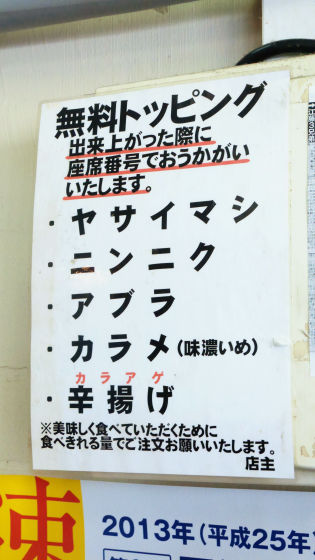 無料トッピング
出来上がった際に
座席番号でおうかがい
いたします。
・ヤサイマシ
・ニンニク
・アブラ
・カラメ(味濃いめ)
カラアゲ
・辛揚げ
※美味しく食べていただくために
食べきれる量でご注文お願いいたします。
店主
2013年(平成25年)